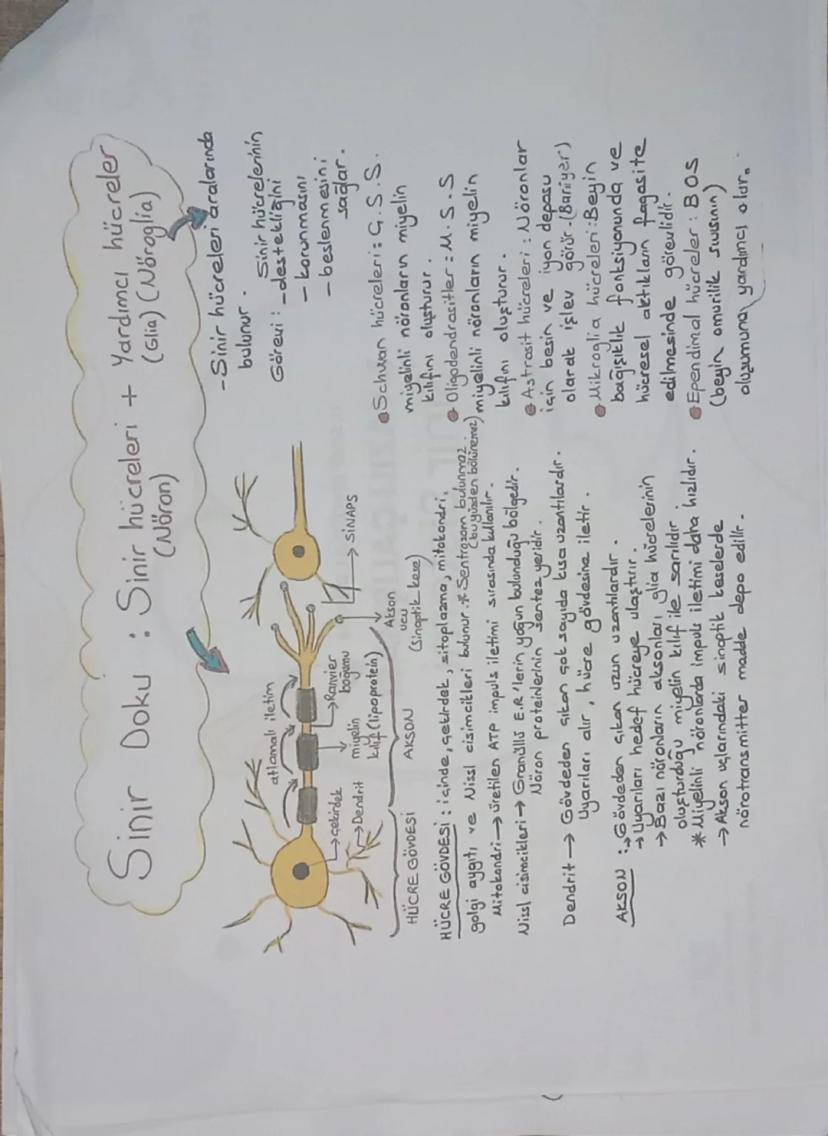 Sinir Doku : Sinir hücreleri + Yardımcı hücreler
(Nöron)
(Glia) (Nöroglia)
-Sinir hücreleri aralarında
bulunur.
Sinir hücrelerinin
Görevi : -destekliğini
- korunmasını
- beslenmesini
sağlar.
atlamalı iletim
çekirdek
Dendrit
Ranvier
boğumu
miyelin
kılıf (lipoprotein)
SİNAPS
Akson
ucu
(sinaptik kese)
HÜCRE GÖVDESİ
AKSON
HÜCRE GÖVDESİ : içinde, çekirdek, sitoplazma, mitokondri,
golgi aygıtı ve Nissl cisimcikleri bulunur. * Sentrozom bulunmaz.
(bu yüzden bölünemez)
Mitokondri → üretilen ATP impuls iletimi sırasında kullanılır.
Nissl cisimcikleri → Granüllü E.R'lerin yoğun bulunduğu bölgedir.
Nöron proteinlerinin sentez yeridir.
Dendrit → Gövdeden çıkan çok sayıda kısa uzantılardır.
Uyarıları alır, hücre gövdesine iletir.
AKSON : → Gövdeden çıkan uzun uzantılardır.
→ Uyarıları hedef hücreye ulaştırır.
→ Bazı nöronların aksonları glia hücrelerinin
oluşturduğu miyelin kılıf ile sarılıdır.
* Miyelinli nöronlarda impuls iletimi daha hızlıdır.
→ Akson uçlarındaki sinaptik keselerde
nörotransmitter madde depo edilir.
Schwan hücreleri : Ç.S.S.
miyelinli nöronların miyelin
kılıfını oluşturur.
Oligodendrasitler : M.S.S
miyelinli nöronların miyelin
kılıfını oluşturur.
Astrosit hücreleri : Nöronlar
için besin ve iyon deposu
olarak işlev görür. (Bariyer)
Mikroglia hücreleri : Beyin
bağışıklık fonksiyonunda ve
hücresel atıkların fagosite
edilmesinde görevlidir.
Ependimal hücreler : BOS
(beyin omurilik sıvısının)
oluşumuna yardımcı olur.